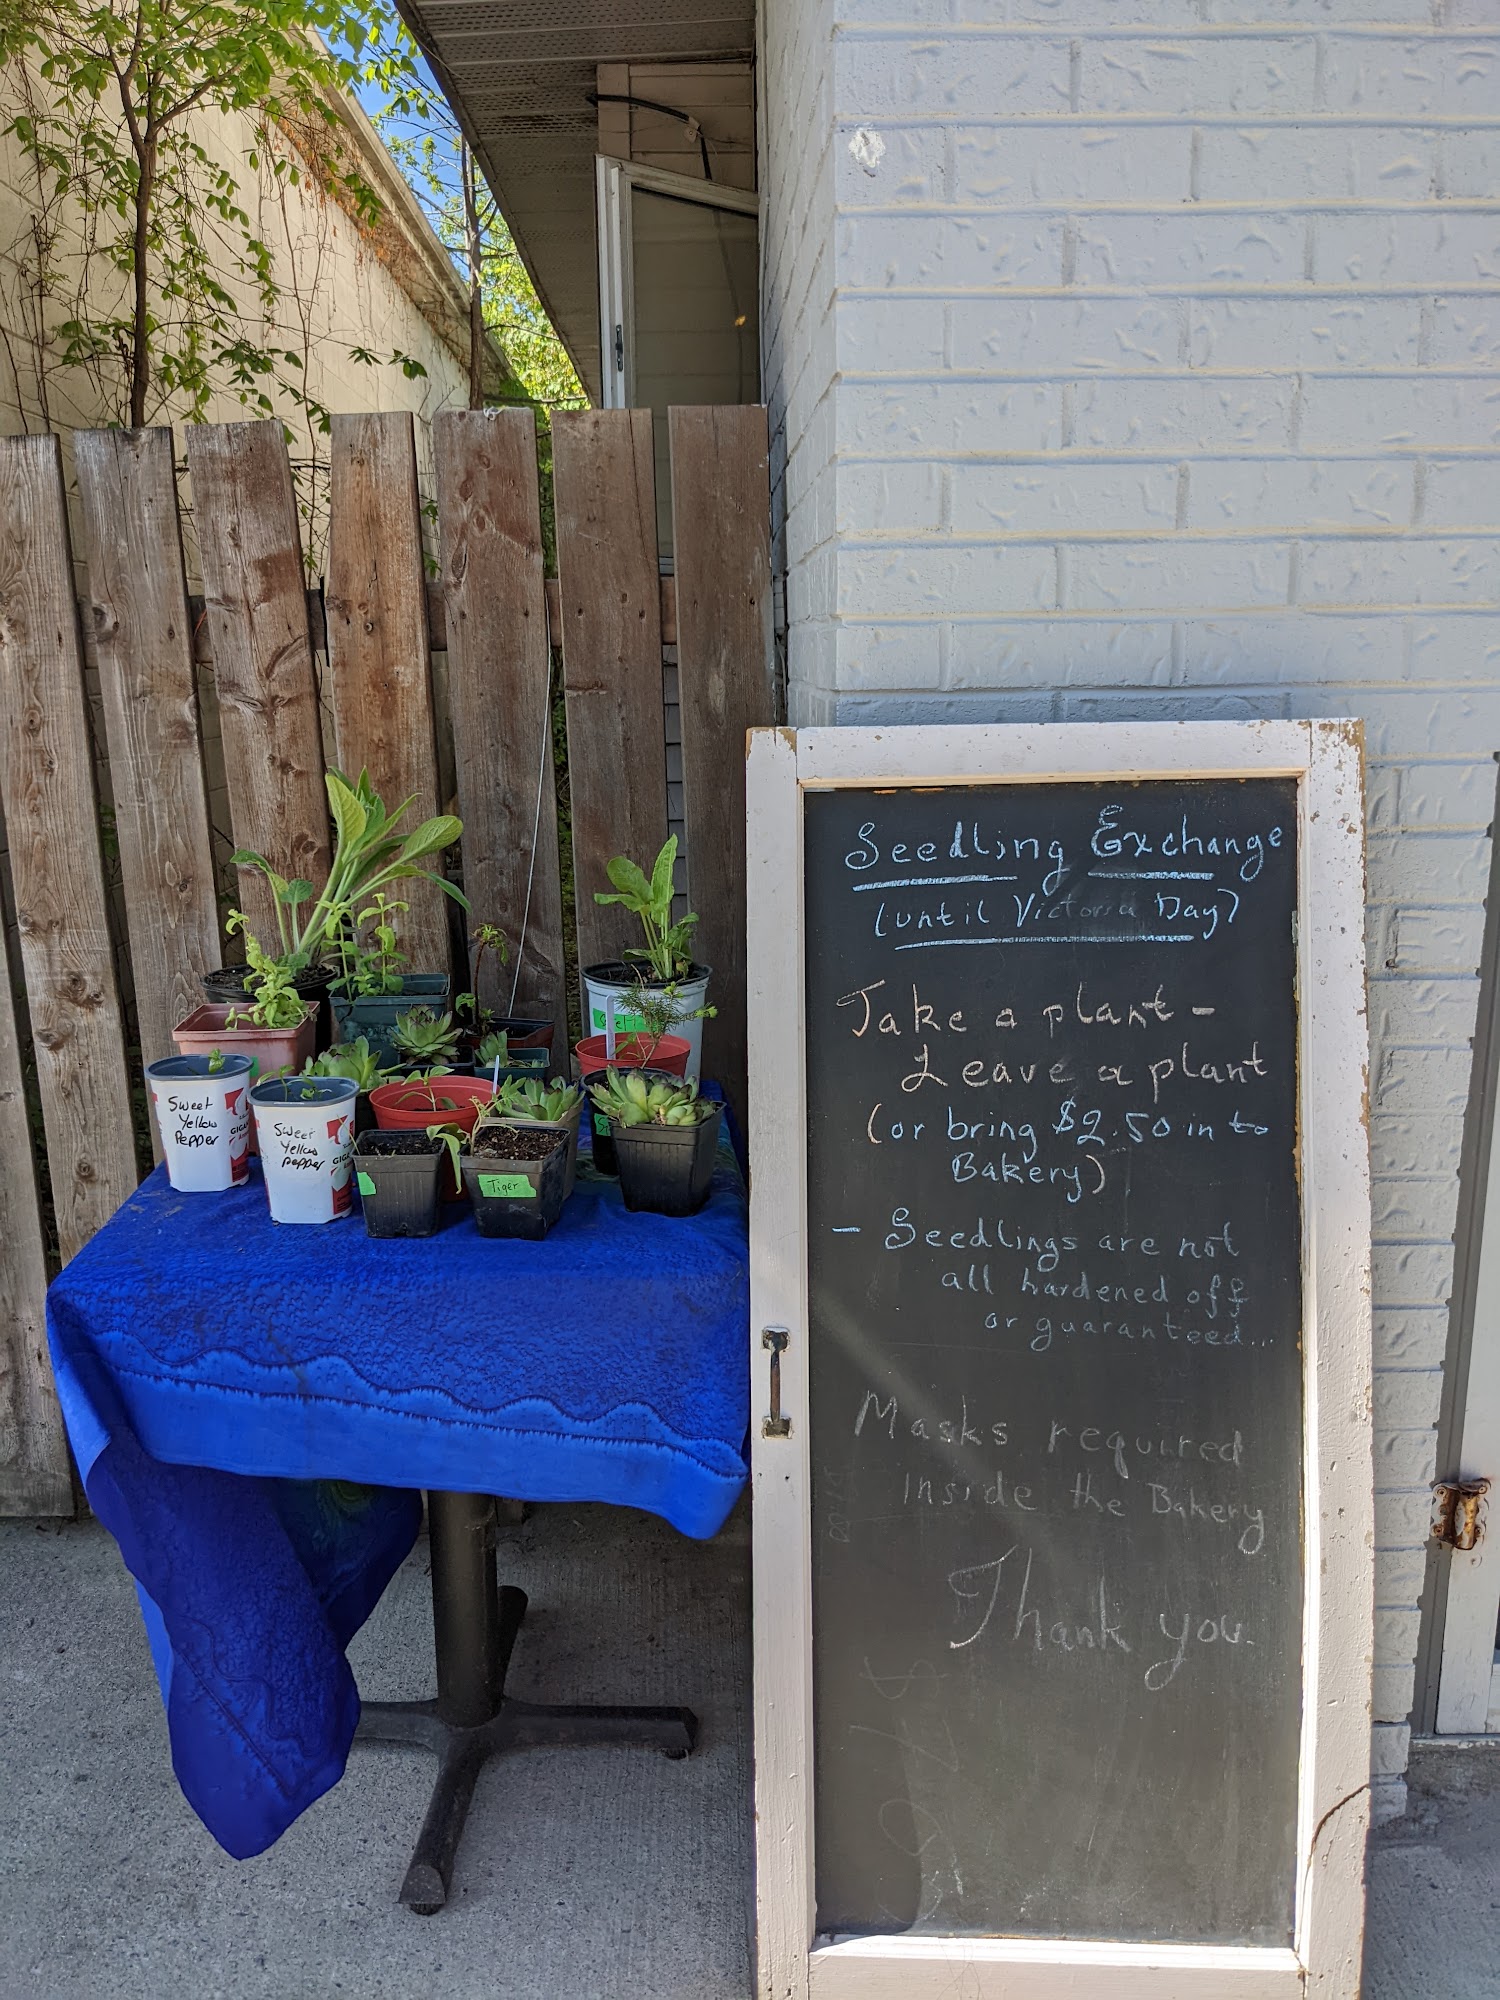 Seedling Exchange
(until Victoria Day)
Take a plant -
Leave a plant
(or bring $2.50 in to
Bakery)
- Seedlings are not
all hardened off
or guaranteed...
Masks required
inside the Bakery
Thank you.
Sweet
Yellow
Pepper
Sweet
Yellow
pepper
Tiger